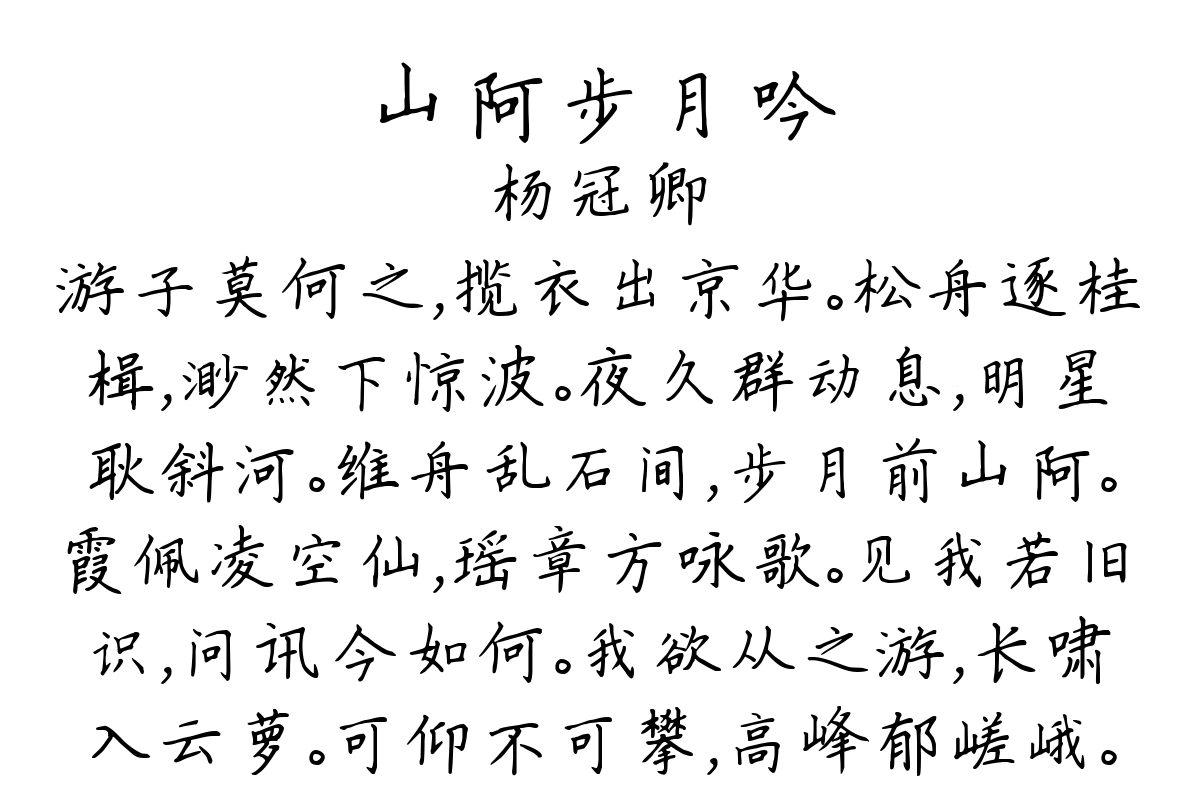 山阿步月吟
杨冠卿
游子莫何之,揽衣出京华。松舟逐桂
楫,渺然下惊波。夜久群动息,明星
耿斜河。维舟乱石间,步月前山阿。
霞佩凌空仙,瑶章方咏歌。见我若旧
识,问讯今如何。我欲从之游,长啸
入云萝。可仰不可攀,高峰郁嵯峨。